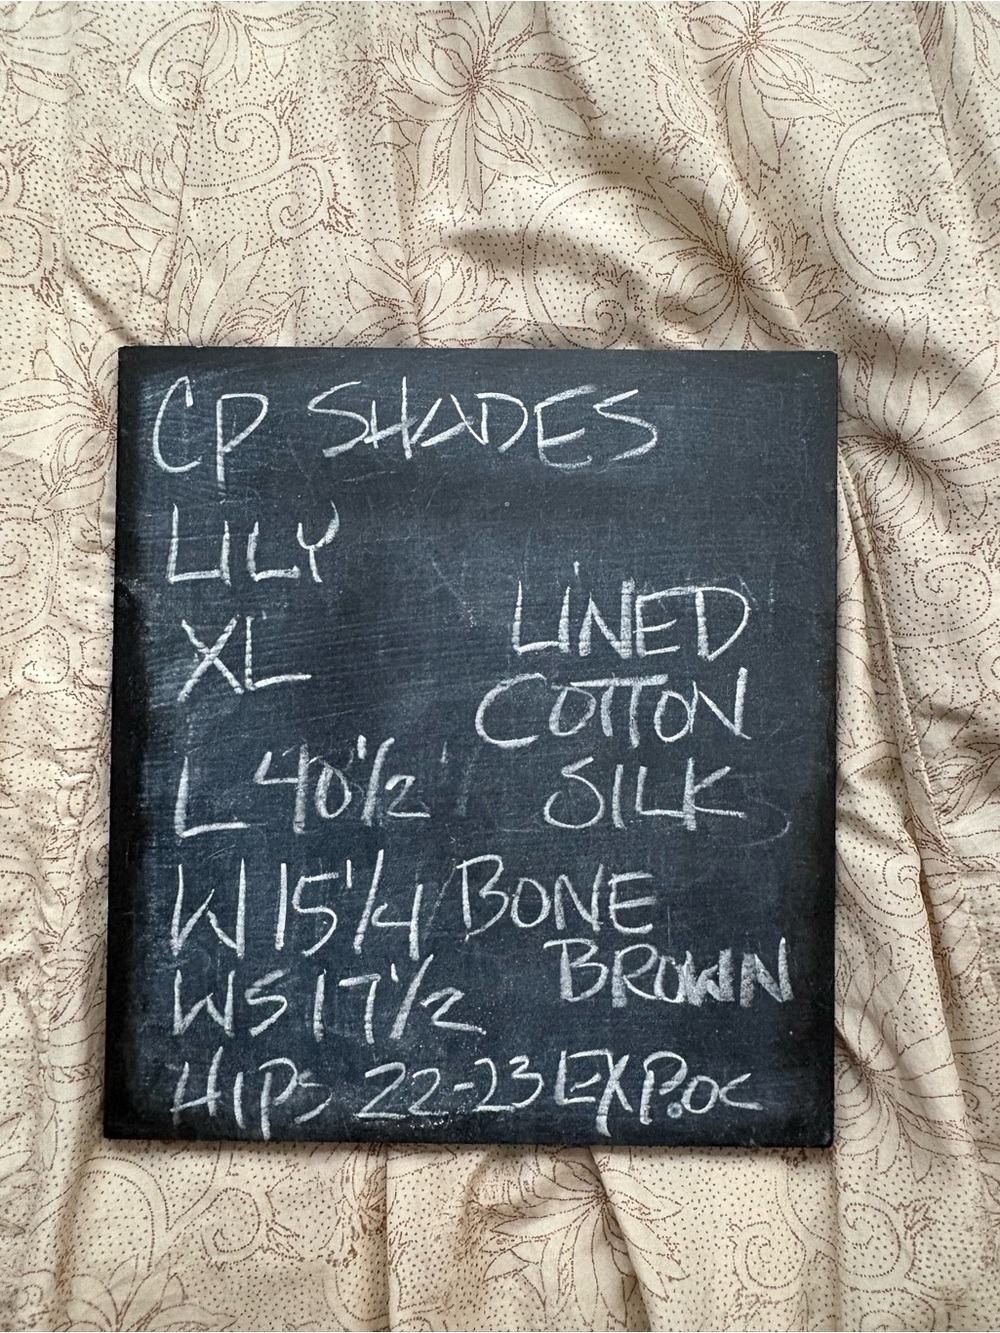 CP SHADES
LILY
XL
LINED
COTTON
L 40 1/2
SILK
W 15 1/4
BONE
BROWN
WS 17 1/2
HIPS 22-23 EXP.OC